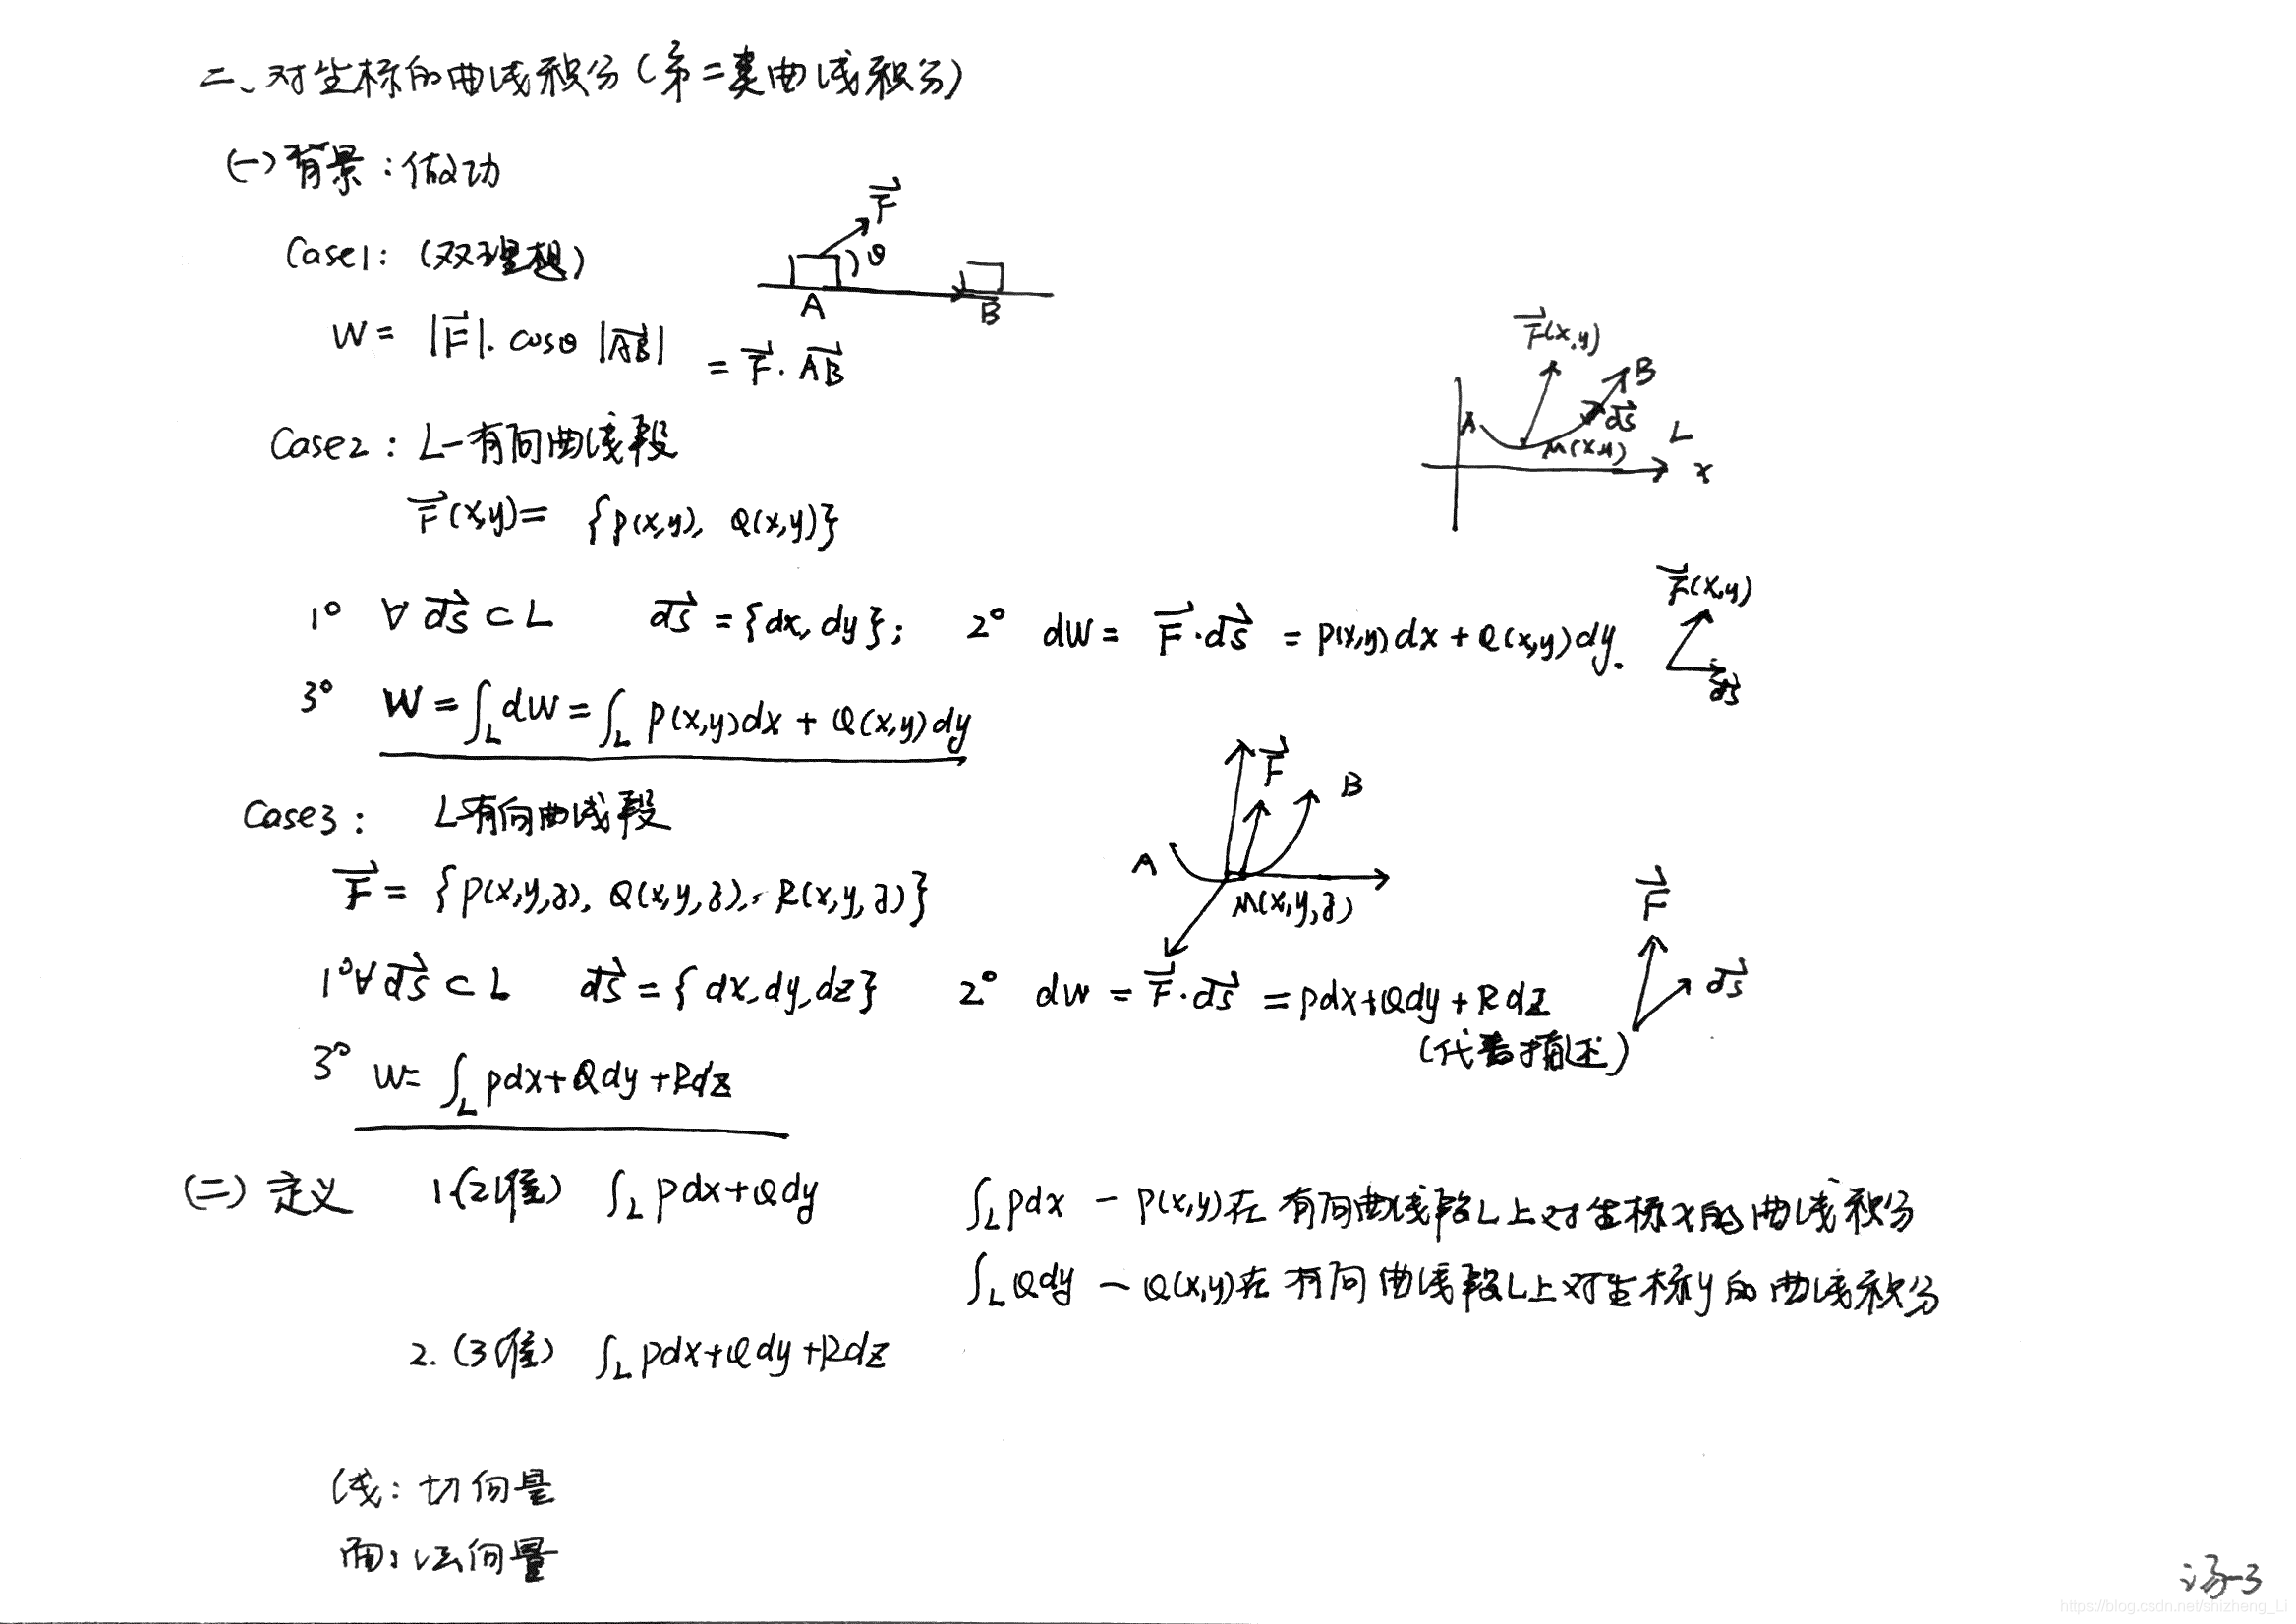 二、对坐标的曲线积分(第二类曲线积分)
(一)背景:做功
Case1: (双理想)
F⃗
θ
A
B
W = |F⃗|·cosθ |AB⃗| = F⃗·AB⃗
F⃗(x,y)
B
A
ds⃗
M(x,y)
L
x
Case2: L-有向曲线段
F⃗(x,y)= {P(x,y), Q(x,y)}
1° ∀ ds⃗ ⊂ L ds⃗ = {dx, dy}; 2° dW = F⃗·ds⃗ = P(x,y)dx + Q(x,y)dy.
F⃗(x,y)
ds⃗
3° W = ∫_L dW = ∫_L P(x,y)dx + Q(x,y)dy
Case3: L-有向曲线段
F⃗
B
A
M(x,y,z)
F⃗ = {P(x,y,z), Q(x,y,z), R(x,y,z)}
1° ∀ ds⃗ ⊂ L ds⃗ = {dx, dy, dz} 2° dw = F⃗·ds⃗ = Pdx+Qdy+Rdz
(代普描述)
F⃗
ds⃗
3° W= ∫_L Pdx+Qdy+Rdz
(二) 定义 1.(2维) ∫_L Pdx+Qdy ∫_L Pdx - P(x,y)在有向曲线段L上对坐标x的曲线积分
∫_L Qdy - Q(x,y)在有向曲线段L上对坐标y的曲线积分
2. (3维) ∫_L Pdx+Qdy+Rdz
线: 切向量
面: 法向量
汤-3
https://blog.csdn.net/shizheng_Li